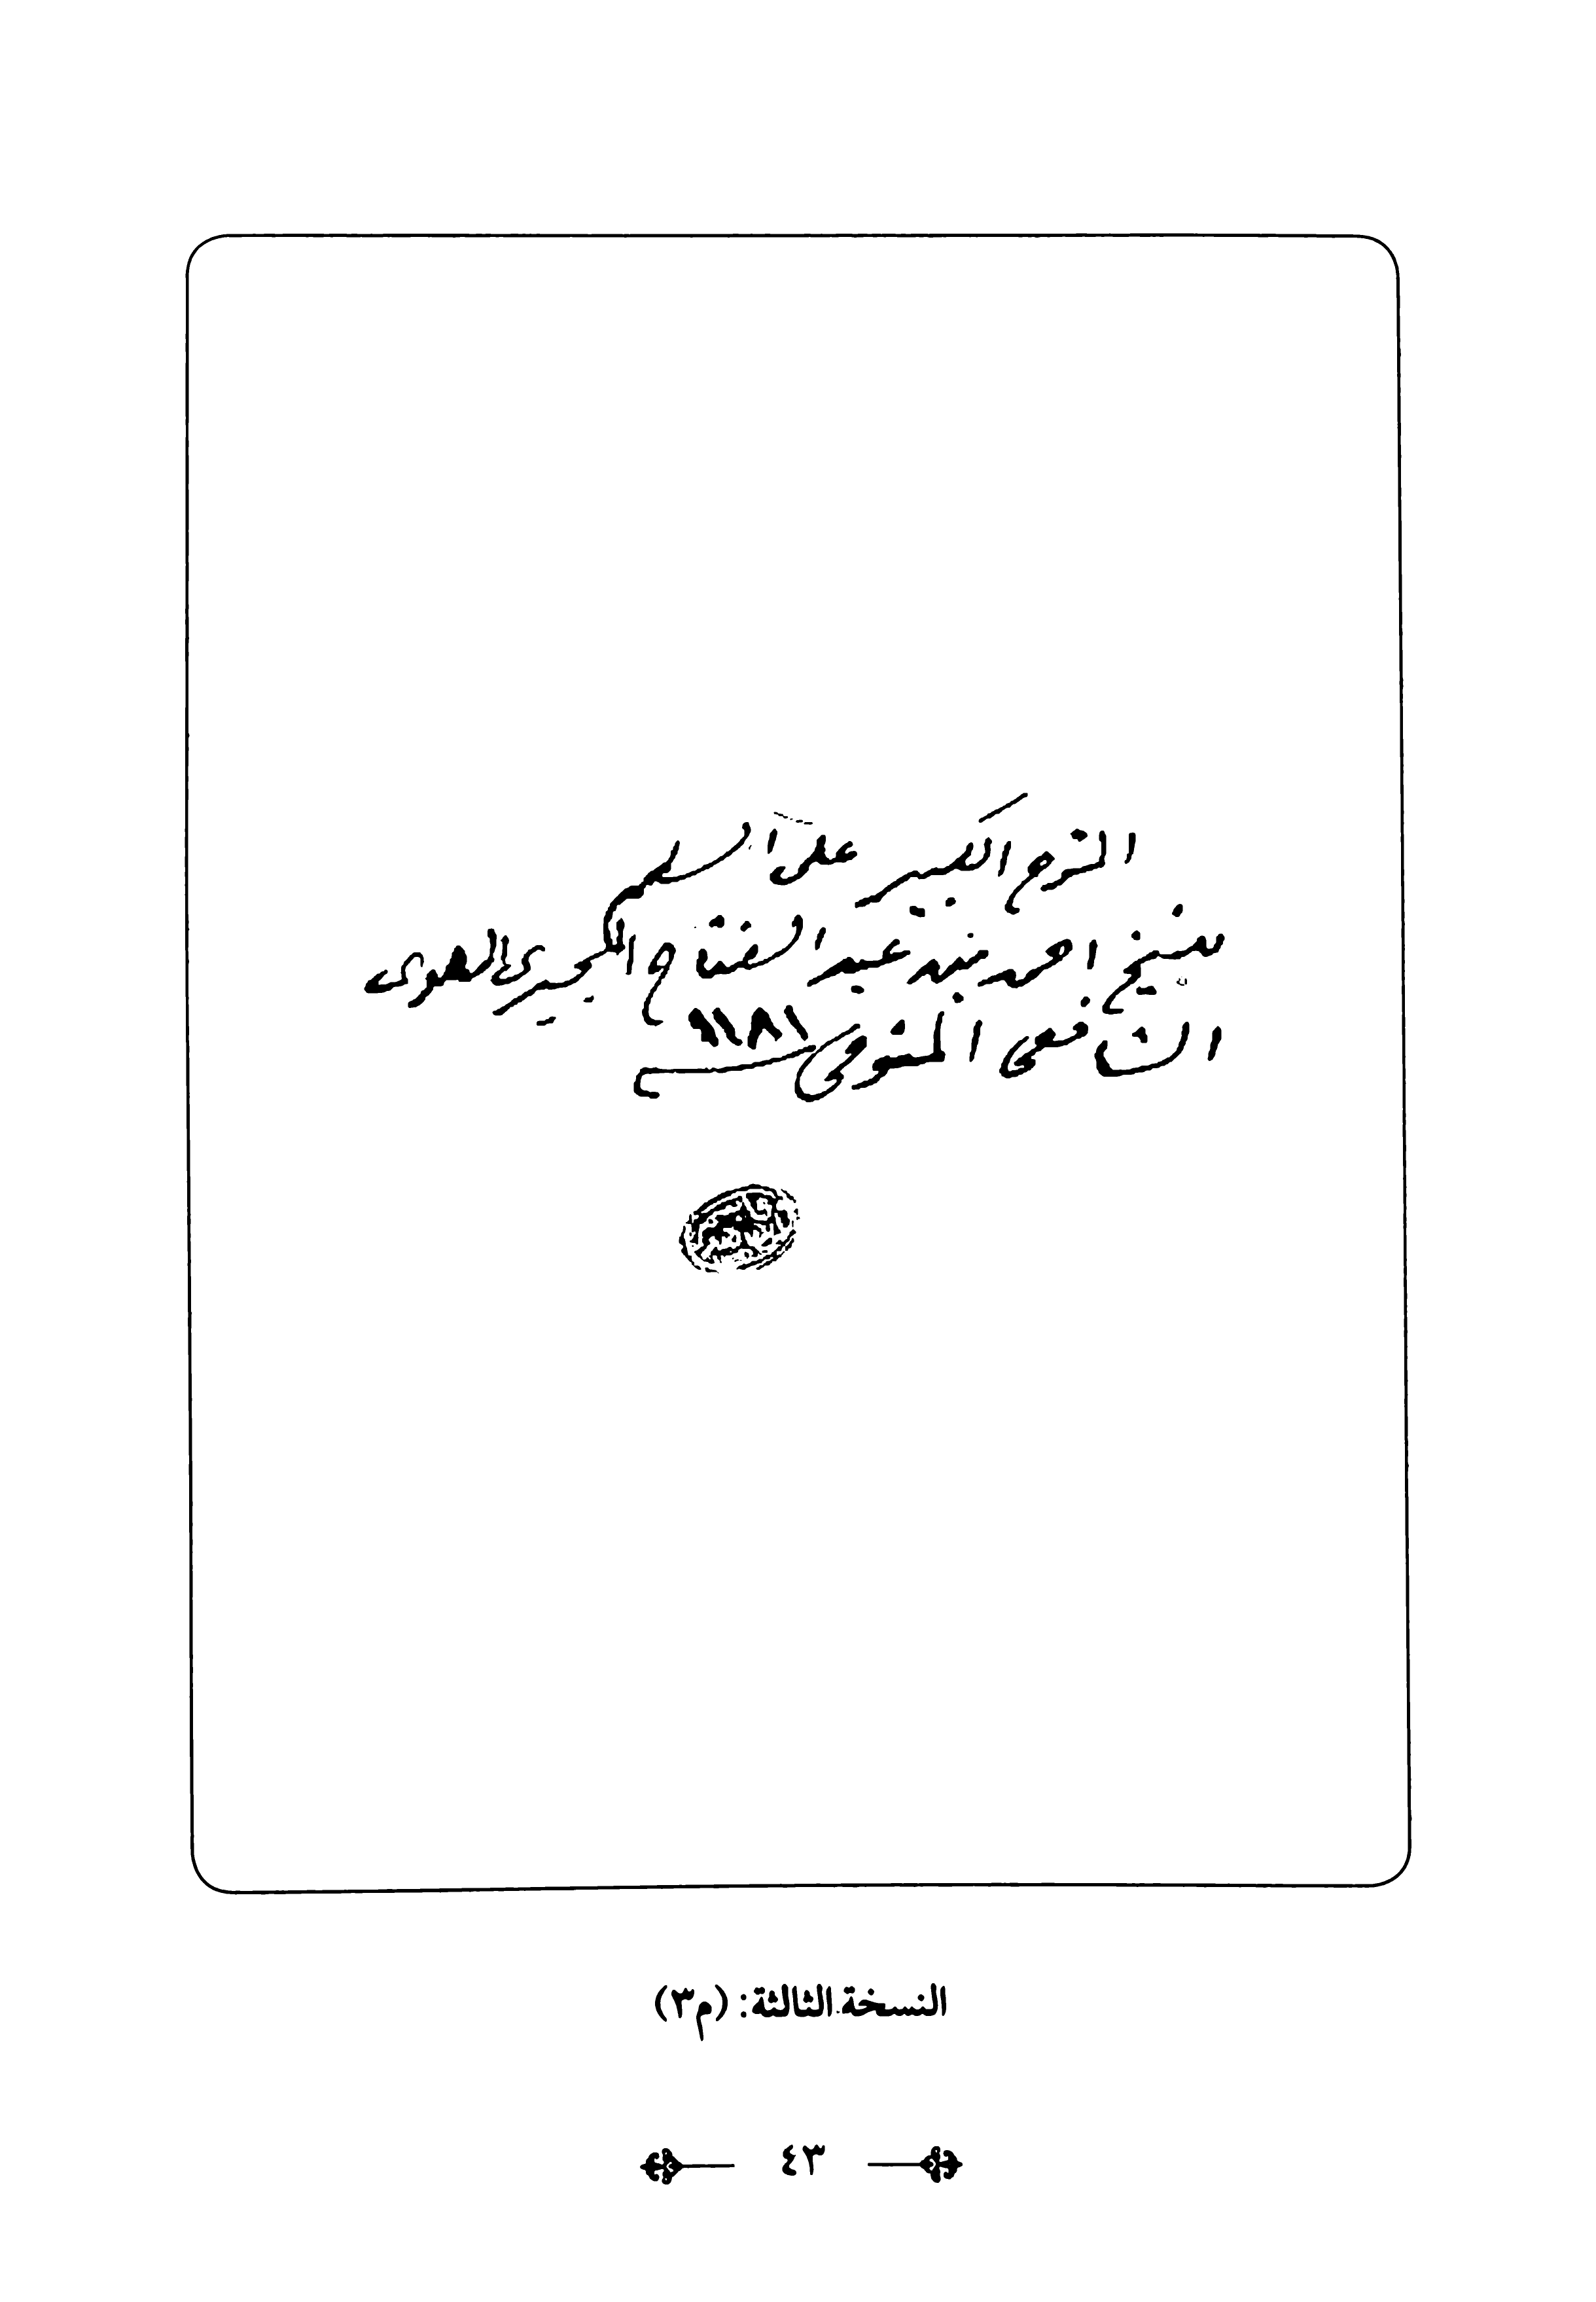 الشرح الكبير على السلم
للشيخ احمد بن عبد الفتاح المجيرى الملوى
الشافعى المتوفى ١١٨١
النسخة الثالثة: (م٣)
٤٣